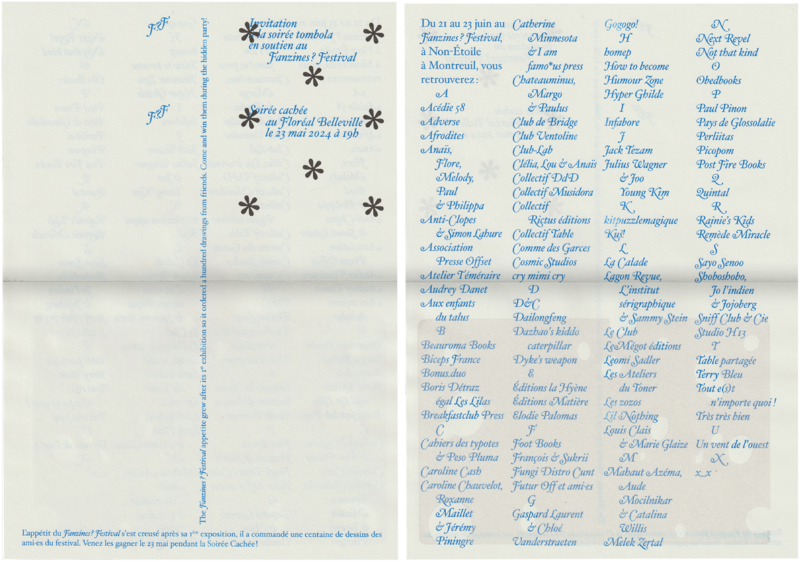 F?F
Invitation
à la soirée tombola
en soutien au
Fanzines? Festival
F?F
Soirée cachée
au Floréal Belleville
le 23 mai 2024 à 19h
The Fanzines? Festival appetite grew after its 1st exhibition so it ordered a hundred drawings from friends. Come and win them during the hidden party!
L'appétit du Fanzines? Festival s'est creusé après sa 1ère exposition, il a commandé une centaine de dessins des
ami·es du festival. Venez les gagner le 23 mai pendant la Soirée Cachée!
Du 21 au 23 juin au
Fanzines? Festival,
à Non-Étoile
à Montreuil, vous
retrouverez :
A
Acédie 58
Adverse
Afrodites
Anaïs,
Flore,
Melody,
Paul
& Philippa
Anti-Clopes
& Simon Lahure
Association
Presse Offset
Atelier Téméraire
Audrey Danet
Aux enfants
du talus
B
Beauroma Books
Biceps France
Bonus.duo
Boris Détraz
égal Les Lilas
Breakfastclub Press
C
Cahiers des typotes
& Peso Pluma
Caroline Cash
Caroline Chauvelot,
Roxanne
Maillet
& Jérémy
Piningre
Catherine
Minnesota
& I am
famo*us press
Chateauminus,
Margo
& Paulus
Club de Bridge
Club Ventoline
Club-Lab
Clélia, Lou & Anaïs
Collectif DdD
Collectif Musidora
Collectif
Rictus éditions
Collectif Table
Comme des Garces
Cosmic Studios
cry mimi cry
D
D&C
Dailongfeng
Dazhao's kiddo
caterpillar
Dyke's weapon
&
Éditions la Hyène
Éditions Matière
Elodie Palomas
F
Foot Books
François & Sukrii
Fungi Distro Cunt
Futur Off et ami·es
G
Gaspard Laurent
& Chloé
Vanderstraeten
Gogogo!
H
homep
How to become
Humour Zone
Hyper Ghilde
I
Infabore
J
Jack Tezam
Julius Wagner
& Joo
Young Kim
K
kitpuzzlemagique
Kuš!
L
La Calade
Lagon Revue,
L'institut
sérigraphique
& Sammy Stein
Le Club
LeMégot éditions
Leomi Sadler
Les Ateliers
du Toner
Les zozos
Lil Nothing
Louis Clais
& Marie Glaize
M
Mahaut Azéma,
Aude
Mocilnikar
& Catalina
Willis
Melek Zertal
N
Next Revel
Not that kind
O
Obedbooks
P
Paul Pinon
Pays de Glossolalie
Perliitas
Picopom
Post Fire Books
Q
Quintal
R
Rainie's Kids
Remède Miracle
S
Sayo Senoo
Shoboshobo,
Jo l'indien
& Jojoberg
Sniff Club & Cie
Studio H13
T
Table partagée
Terry Bleu
Tout e(s)t
n'importe quoi !
Très très bien
U
Un vent de l'ouest
X
x_x